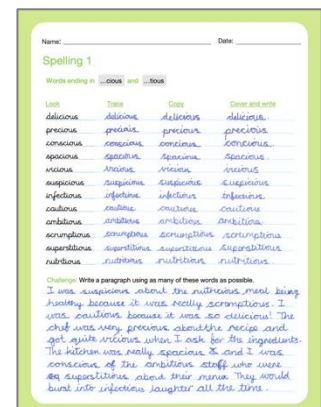 Name: Date:
Spelling 1
Words ending in ...cious and ...tious
Look Trace Copy Cover and write
delicious delicious delicious delicious
precious precious precious precious
conscious conscious concious concious
spacious spacious spacious spacious
vicious vicious vicious vicious
suspicious suspicious suspicious suspicious
infectious infectious infectious infectious
cautious cautious cautious cautious
ambitious ambitious ambitious ambitious
scrumptious scrumptious scrumptious scrumptious
superstitious superstitious superstitious superstitious
nutritious nutritious nutritious nutritious
Challenge: Write a paragraph using as many of these words as possible.
I was suspicious about the nutricious meal being
healthy because it was really scromptious. I
was cautious because it was so delicious! The
chef was very precious about the recipe and
got quite vicious when I ask for the ingredients.
The kitchen was really spacious & and I was
conscious of the ambitious staff who were
superstitious about their menu. They would
burst into infectious laughter all the time.